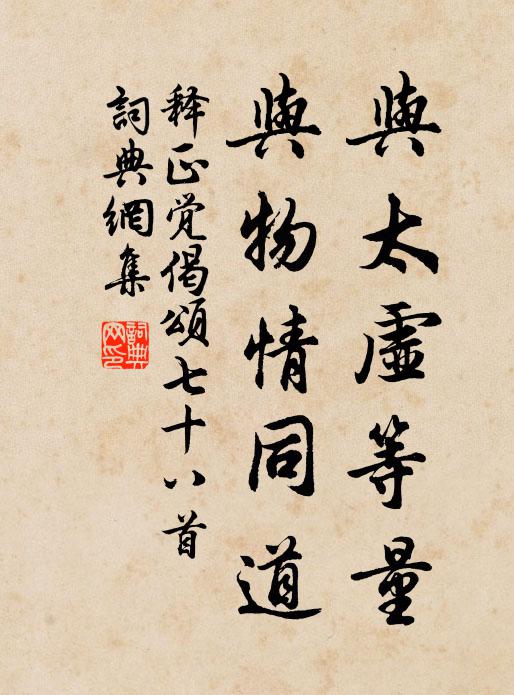 與太虛等量
與物情同道
釋正覺偈頌七十八首
詞典網集
詞典網印